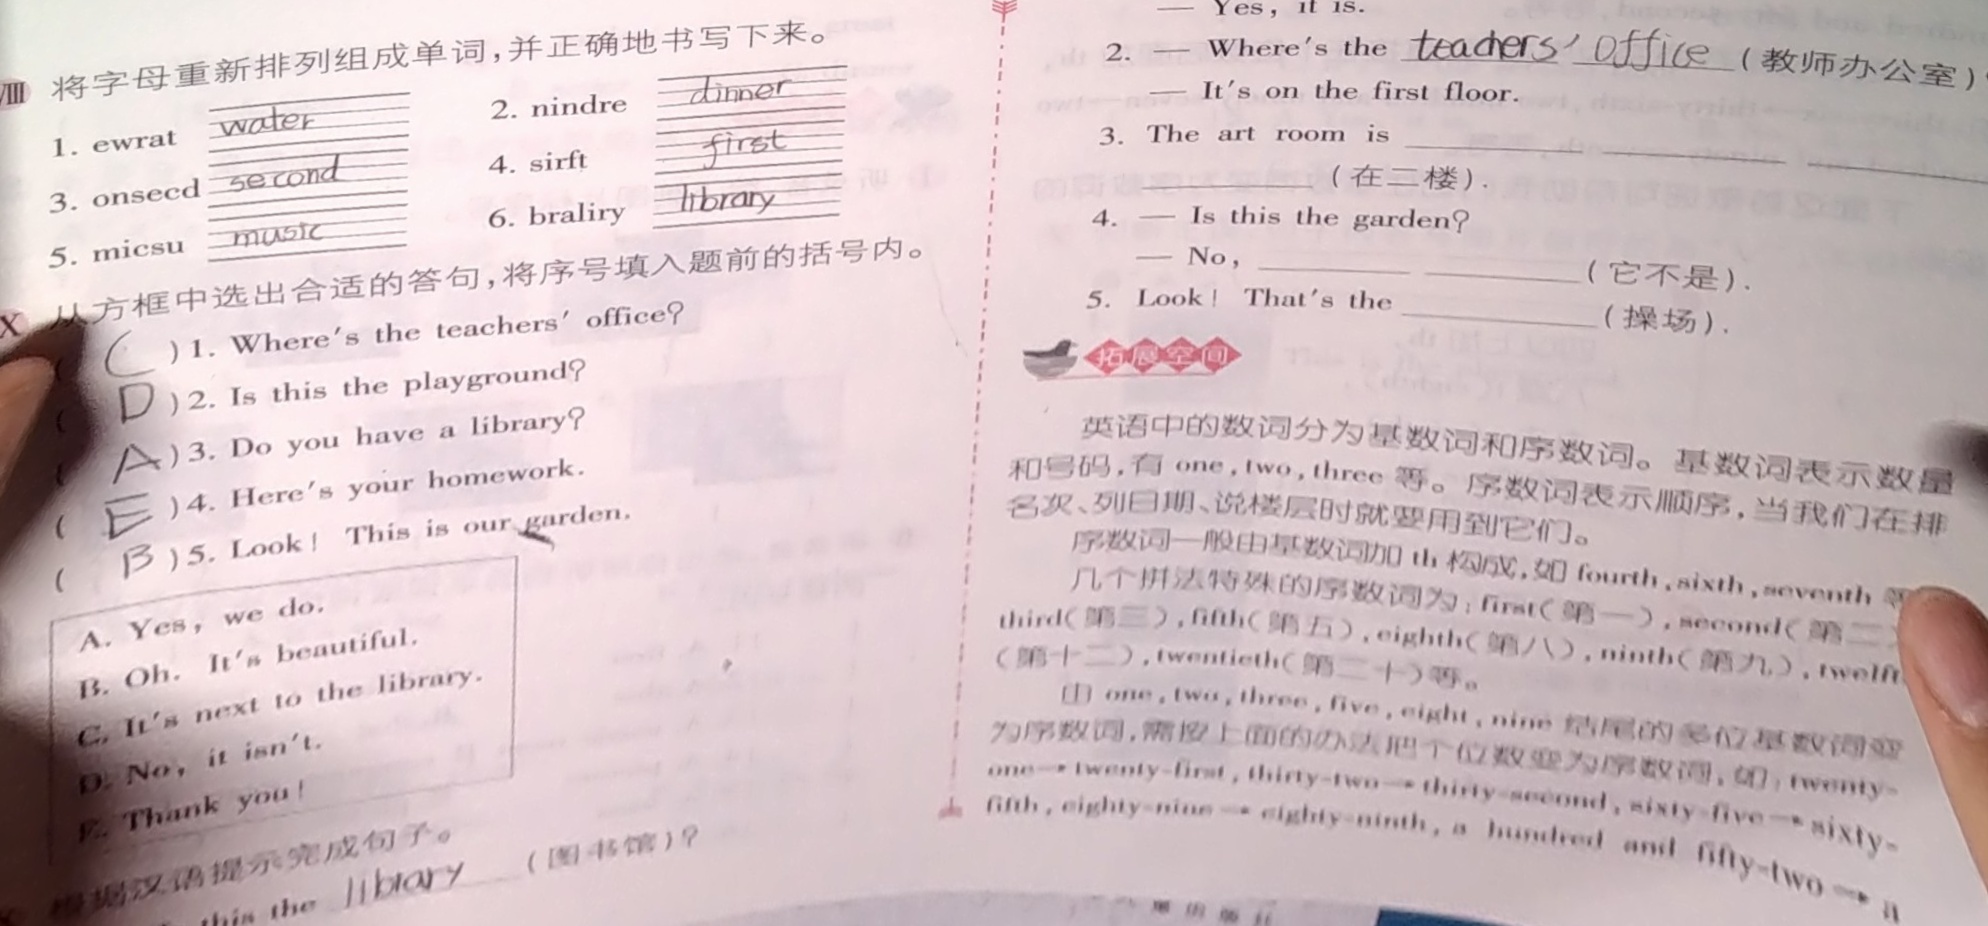 Ⅷ 将字母重新排列组成单词,并正确地书写下来。
1. ewrat water 2. nindre dinner
3. onsecd second 4. sirft first
5. micsu music 6. braliry library
从方框中选出合适的答句,将序号填入题前的括号内。
( C )1. Where's the teachers' office?
( D )2. Is this the playground?
( A )3. Do you have a library?
( E )4. Here's your homework.
( B )5. Look! This is our garden.
A. Yes, we do.
B. Oh. It's beautiful.
C. It's next to the library.
D. No, it isn't.
E. Thank you!
根据汉语提示完成句子。
this the library (图书馆)?
— Yes, it is.
2. — Where's the teachers' office (教师办公室)?
— It's on the first floor.
3. The art room is
(在二楼).
4. — Is this the garden?
— No, (它不是).
5. Look! That's the (操场).
拓展空间
英语中的数词分为基数词和序数词。基数词表示数量
和号码,有 one,two,three 等。序数词表示顺序,当我们在排
名次、列日期、说楼层时就要用到它们。
序数词一般由基数词加 th 构成,如 fourth,sixth,seventh 等
几个拼法特殊的序数词为:first(第一),second(第二)
third(第三),fifth(第五),eighth(第八),ninth(第九),twelft
(第十二),twentieth(第二十)等。
由 one,two,three,five,eight,nine 结尾的多位基数词变
为序数词,需按上面的办法把个位数变为序数词,如:twenty-
one→twenty-first,thirty-two→thirty-second,sixty-five→sixty-
fifth,eighty-nine→eighty-ninth,a hundred and fifty-two→a